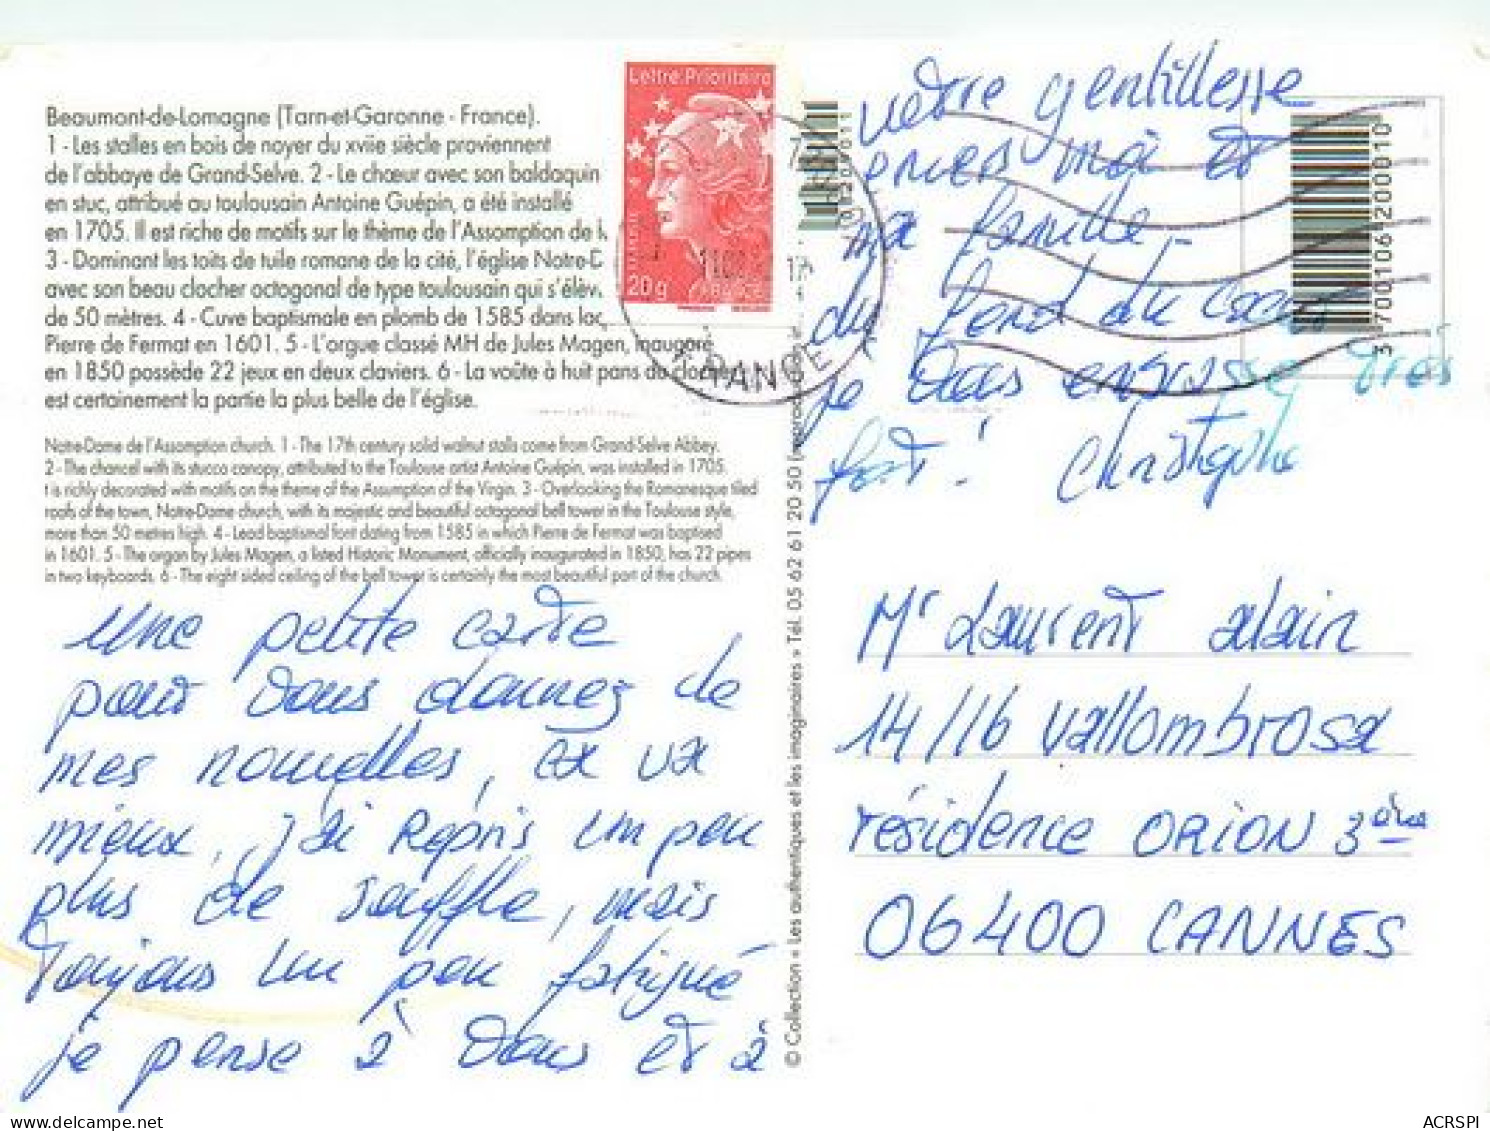 Beaumont-de-Lomagne (Tarn-et-Garonne - France).
1 - Les stalles en bois de noyer du xviie siècle proviennent
de l'abbaye de Grand-Selve. 2 - Le chœur avec son baldaquin
en stuc, attribué au toulousain Antoine Guépin, a été installé
en 1705. Il est riche de motifs sur le thème de l'Assomption de l
3 - Dominant les toits de tuile romane de la cité, l'église Notre-D
avec son beau clocher octogonal de type toulousain qui s'élèv
de 50 mètres. 4 - Cuve baptismale en plomb de 1585 dans laq
Pierre de Fermat en 1601. 5 - L'orgue classé MH de Jules Magen, inauguré
en 1850 possède 22 jeux en deux claviers. 6 - La voûte à huit pans du clocher
est certainement la partie la plus belle de l'église.
Notre-Dame de l'Assomption church. 1 - The 17th century solid walnut stalls come from Grand-Selve Abbey.
2 - The chancel with its stucco canopy, attributed to the Toulouse artist Antoine Guépin, was installed in 1705.
t is richly decorated with motifs on the theme of the Assumption of the Virgin. 3 - Overlooking the Romanesque tiled
roofs of the town, Notre-Dame church, with its majestic and beautiful octagonal bell tower in the Toulouse style,
more than 50 metres high. 4 - Lead baptismal font dating from 1585 in which Pierre de Fermat was baptised
in 1601. 5 - The organ by Jules Magen, a listed Historic Monument, officially inaugurated in 1850, has 22 pipes
in two keyboards. 6 - The eight sided ceiling of the bell tower is certainly the most beautiful part of the church.
Une petite carte
pour vous donnez de
mes nouvelles, ça va
mieux, j'ai repris un peu
plus de souffle, mais
toujours un peu fatigué
je pense à vous et à
Lettre Prioritaire
20g
FRANCE
FRANCE
© Collection « Les authentiques et les imaginaires » Tél. 05 62 61 20 50
votre gentillesse
envers moi et
ma famille,
du fond du cœur
je vous embrasse très
fort! Christophe
3 700106 200010
Mr Laurent alain
14/16 Vallombrosa
résidence ORION 3ème
06400 CANNES
ACRSPI